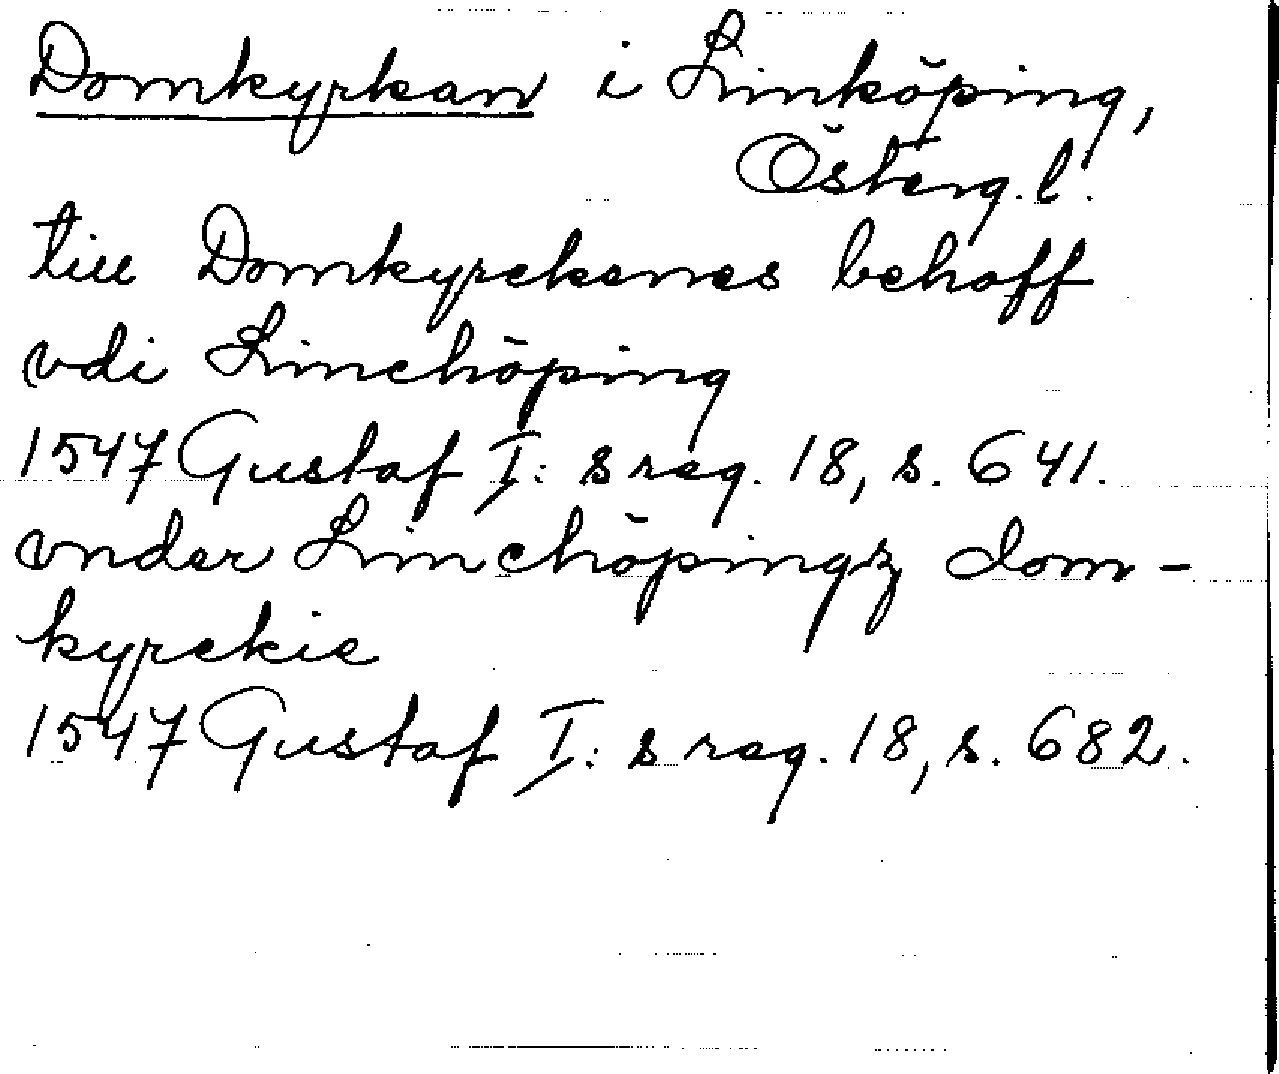 Domkyrkan i Linköping,
Österg. l.
till Domkyrckenes behoff
vdi Linchöping
1547 Gustaf I:s reg. 18, s. 641.
vnder Linchöpingz dom-
kyrckie
1547 Gustaf I:s reg. 18, s. 682.